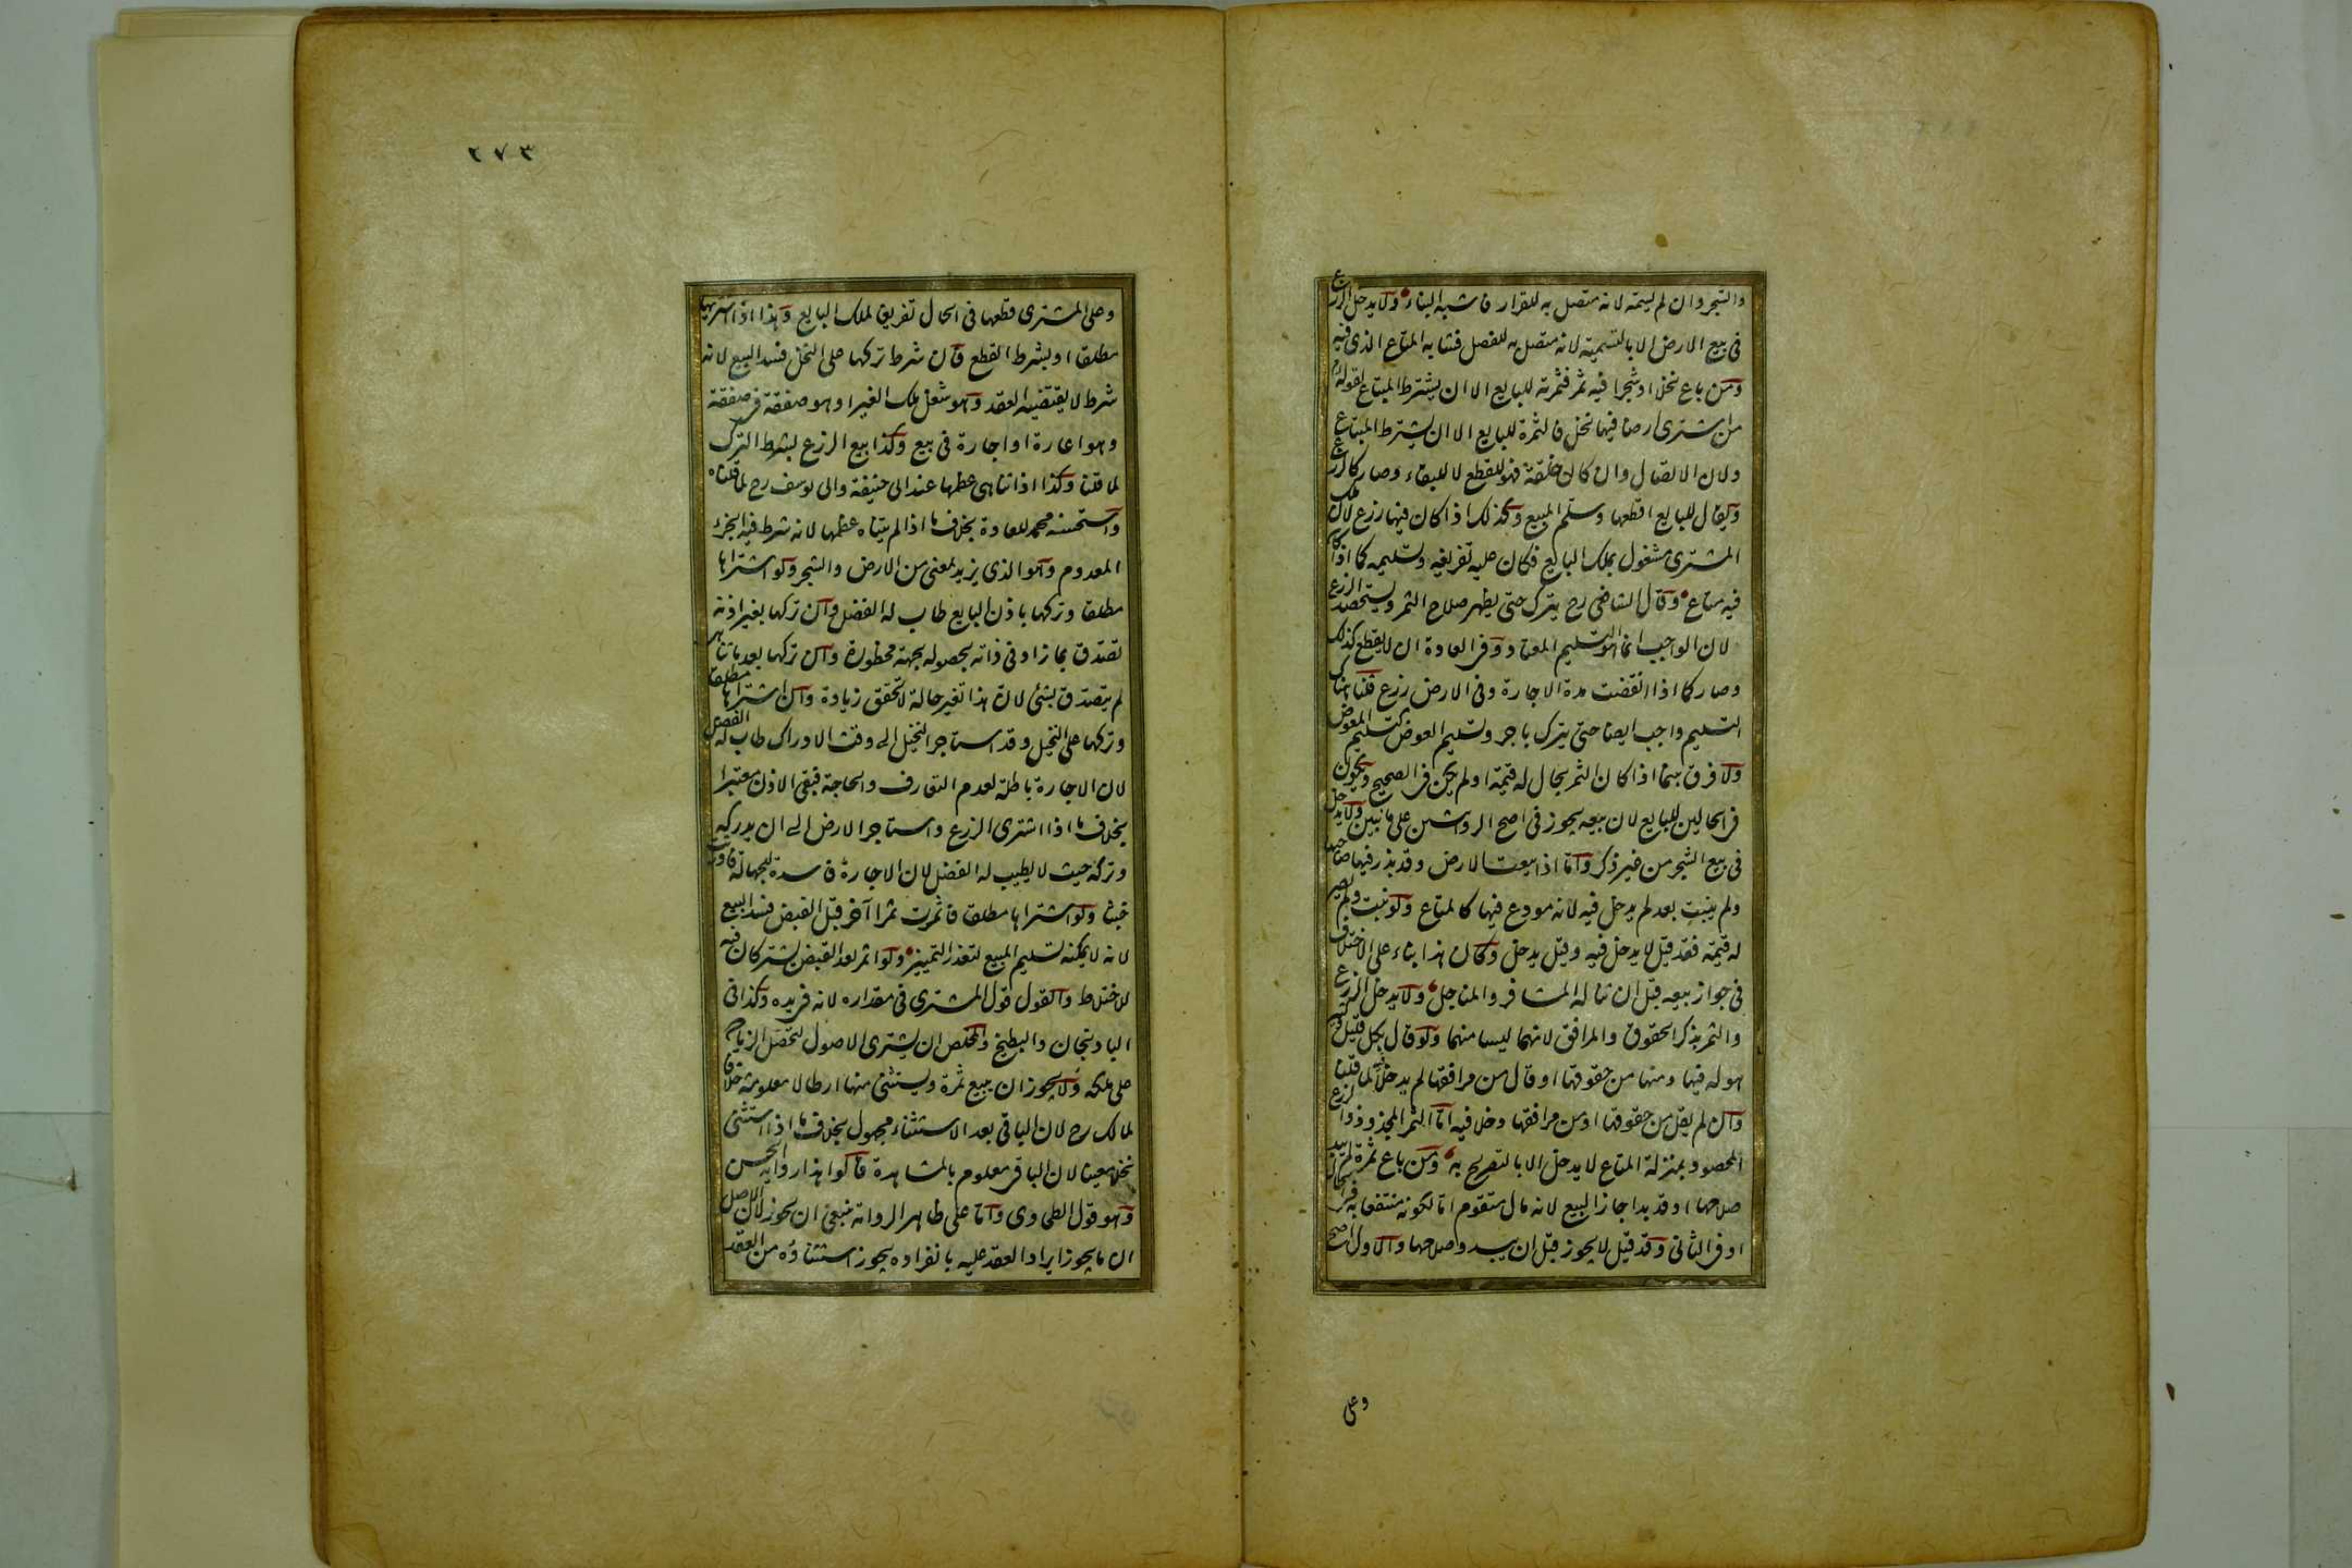 والشجر وان لم يسمه لانه متصل به للقرار فاشبه البناء ولا يدخل الزرع
فى بيع الارض الا بالتسمية لانه متصل به للفصل فشابه المتاع الذى فيه
ومن باع نخلا او شجرا فيه ثمر فثمرته للبايع الا ان يشترط المبتاع لقوله م
من اشترى ارضا فيها نخل فالثمرة للبايع الا ان يشترط المبتاع
ولان الاتصال وان كان خلقة فهو للقطع لا للبقاء وصار كالزرع
ويقال للبايع اقطعها وسلم المبيع وكذلك اذا كان فيها زرع لان ملك
المشترى مشغول بملك البايع فكان عليه تفريغه وتسليمه كما اذا كان
فيه متاع وقال الشافى رح يترك حتى يظهر صلاح الثمر ويستحصد الزرع
لان الواجب انما هو التسليم المعتاد وفى العادة ان لا يقطع كذلك
وصار كما اذا انقضت مدة الاجارة وفى الارض زرع قلنا هناك
التسليم واجب ايضا حتى يترك باجر وتسليم العوض كتسليم المعوض
ولا فرق بينما اذا كان الثمر بحال له قيمة او لم يكن فى الصحيح ويكون
فى الحالين للبايع لان بيعه يجوز فى اصح الروايتين على ما نبين ولا يدخل
فى بيع الشجر من غير ذكر واما اذا بيعت الارض وقد بذر فيها صاحبها
ولم ينبت بعد لم يدخل فيه لانه مودع فيها كالمتاع ولو نبت ولم يصر
له قيمة فقد قيل لا يدخل فيه وقيل يدخل وكان هذا بناء على الاختلاف
فى جواز بيعه قبل ان تناله المشافر والمناجل ولا يدخل الزرع
والثمر بذكر الحقوق والمرافق لانهما ليسا منهما ولو قال بكل قليل وكثير
هو له فيها ومنها من حقوقها او قال من مرافقها لم يدخلا لما قلنا
وان لم يقل من حقوقها او من مرافقها دخلا فيه اما الثمر المجذوذ والزرع
المحصود بمنزلة المتاع لا يدخل الا بالتصريح به ومن باع ثمرة لم يبد
صلاحها او قد بدا جاز البيع لانه مال متقوم اما لكونه منتفعا به فى الحال
او فى الثانى وقد قيل لا يجوز قبل ان يبدو صلاحها والاول اصح
وعلى
٢٧٣
وعلى المشترى قطعها فى الحال تفريغا لملك البايع وهذا اذا اشتريها
مطلقا او بشرط القطع فان شرط تركها على النخل فسد البيع لانه
شرط لا يقتضيه العقد وهو شغل ملك الغير او هو صفقة فى صفقة
وهو اعارة او اجارة فى بيع وكذا بيع الزرع بشرط الترك
لما قلنا وكذا اذا تناهى عظمها عند ابى حنيفة وابى يوسف رح لما قلناه
واستحسنه محمد للعادة بخلاف ما اذا لم يتناه عظمها لانه شرط فيه الجزء
المعدوم وهو الذى يزيد لمعنى من الارض والشجر ولو اشتراها
مطلقا وتركها باذن البايع طاب له الفضل وان تركها بغير اذنه
تصدق بما زاد فى ذاته لحصوله بجهة محظورة وان تركها بعد ما تناهى
لم يتصدق بشئ لان هذا تغير حالة لا تحقق زيادة وان اشتراها مطلقا
وتركها على النخيل وقد استاجر النخيل الى وقت الادراك طاب له الفضل
لان الاجارة باطلة لعدم التعارف والحاجة فبقى الاذن معتبرا
بخلاف ما اذا اشترى الزرع واستاجر الارض الى ان يدركه
وتركه حيث لا يطيب له الفضل لان الاجارة فاسدة للجهالة فاورثت
خبثا ولو اشتراها مطلقا فاثمرت ثمرا آخر قبل القبض فسد البيع
لانه لا يمكنه تسليم المبيع لتعذر التمييز ولو اثمر بعد القبض يشتركان فيه
للاختلاط والقول قول المشترى فى مقداره لانه فى يده وكذا فى
الباذنجان والبطيخ والمخلص ان يشترى الاصول لتحصل الزيادة
على ملكه ولا يجوز ان يبيع ثمرة ويستثنى منها ارطالا معلومة خلافا
لمالك رح لان الباقى بعد الاستثناء مجهول بخلاف ما اذا استثنى
نخلا معينا لان الباقى معلوم بالمشاهدة قالوا هذا رواية الحسن
وهو قول الطحاوى واما على ظاهر الرواية ينبغى ان يجوز لان الاصل
ان ما يجوز ايراد العقد عليه بانفراده يجوز استثناؤه من العقد